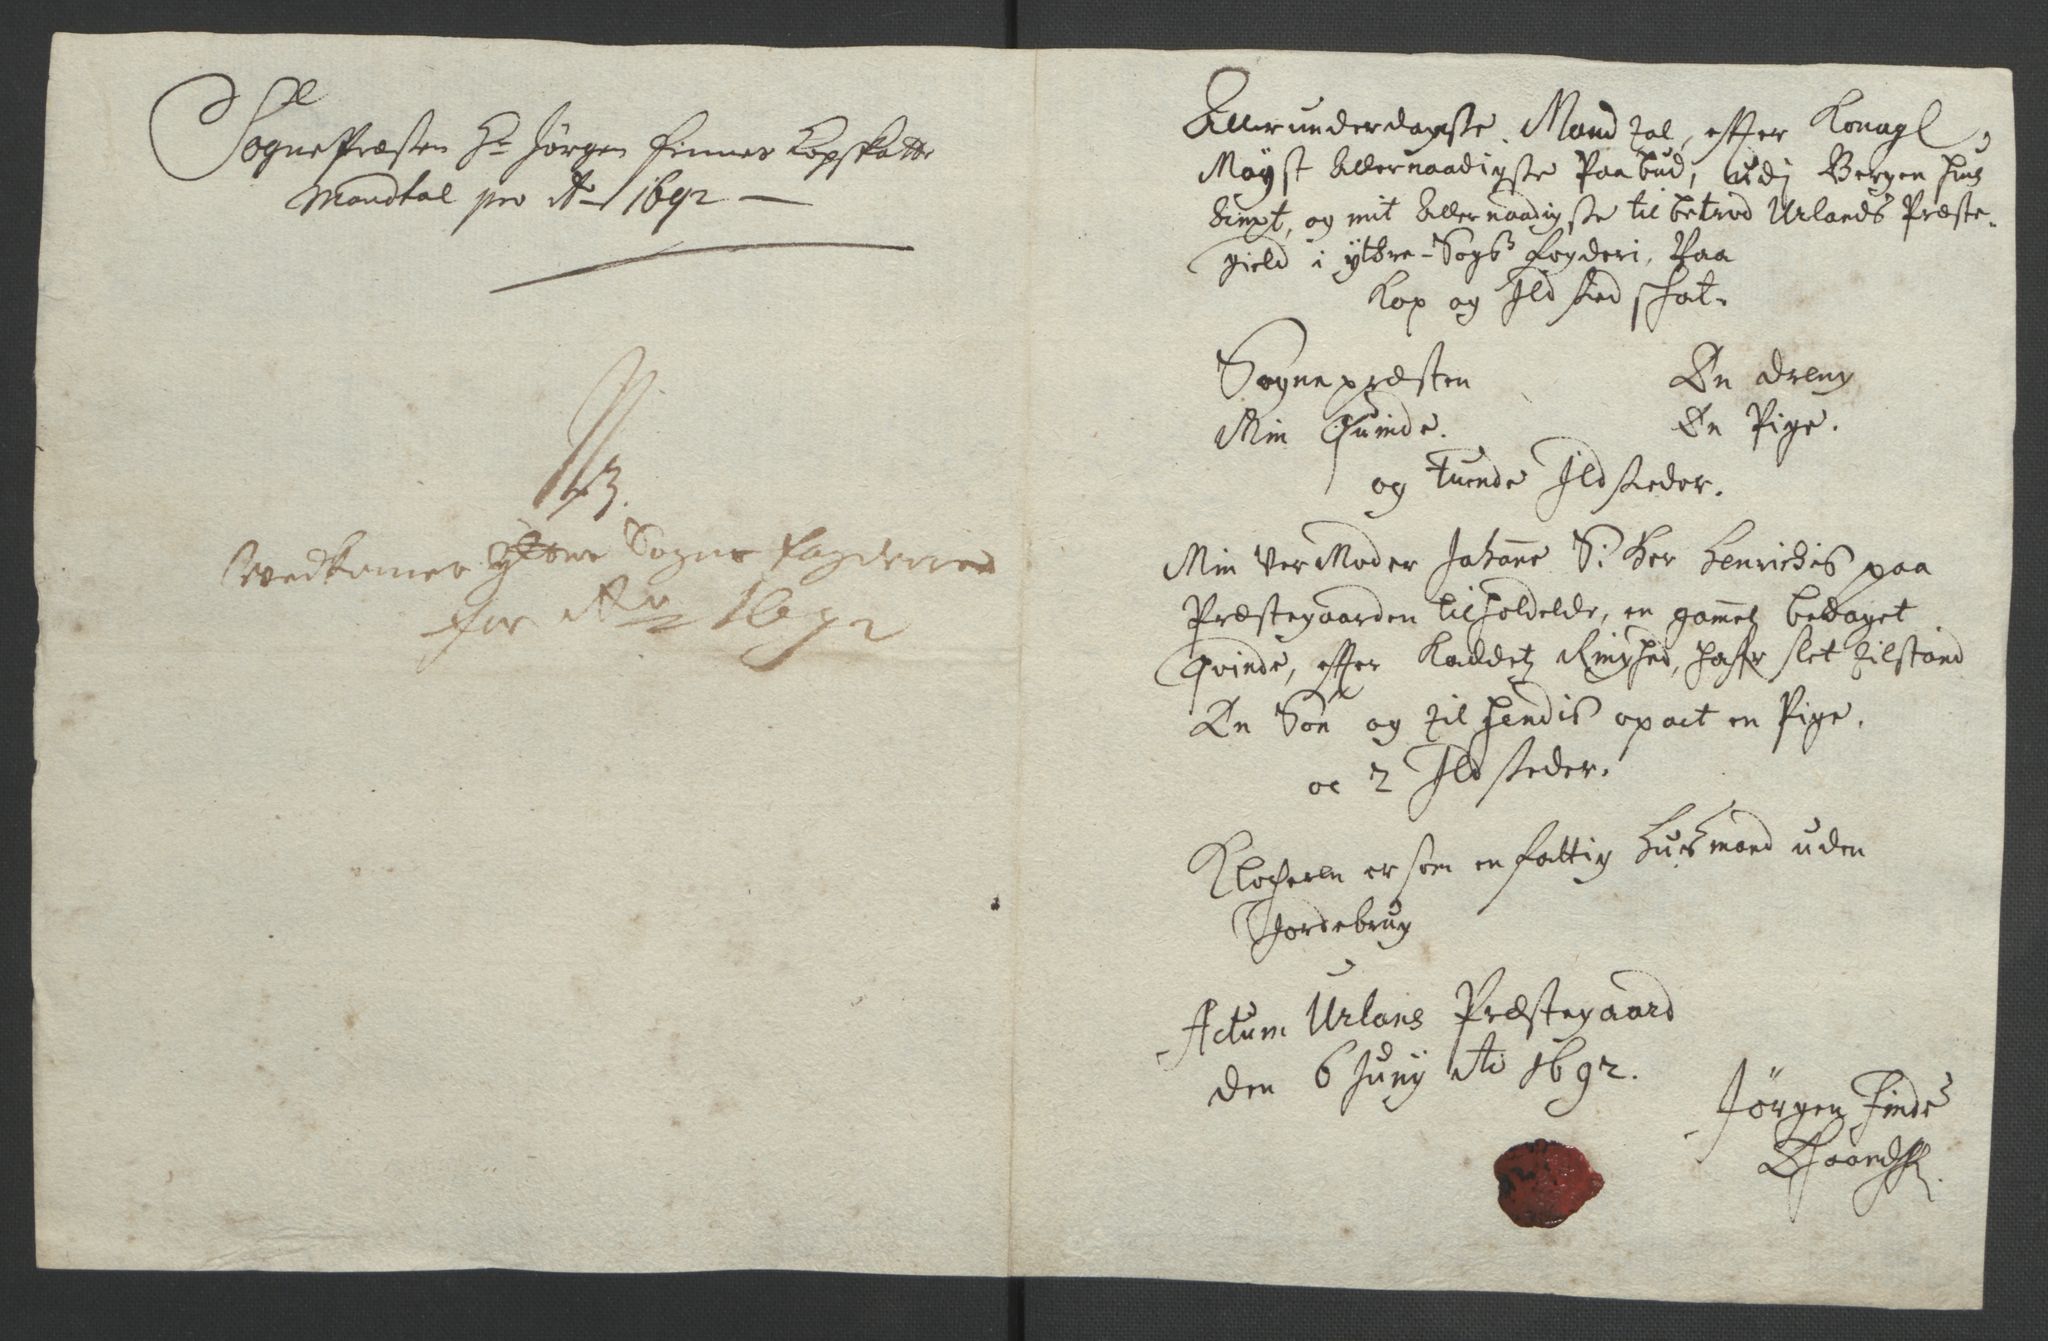 Sognepræsten Hr Jørgen Finnes Kopskatts
Mandtal pro Ao 1692
N 3.
Vedkommer Yttre Sogns Fogderie
for Ao 1692
Allerunderdanigste Mandtal, effter Kongl
Mayst Allernaadigste Paabud, udj Bergenhus
Ampt, og mit Allernaadigste tilbetrod Urlands Præste-
gield i ÿttre-Sogns Fogderi, Paa
Kop og Ildstedschat.
Sognepræsten
Min Quinde.
En dreng
En Pige.
og tuende Ildsteder.
Min VerModer Johanne S: Her Henrichs paa
Præstegaarden tilholdelde, en gammel bedaget
Qvinde, effter Kaldetz Ringhed, haffr slet tilstand
En Søn og til hendis opact en Pige.
oc 2 Ildsteder.
Klocheren er som en fattig Huusmand uden
Jordebrug
Actum Urlans Præstegaard
den 6 Junij Ao 1692.
Jørgen Finde